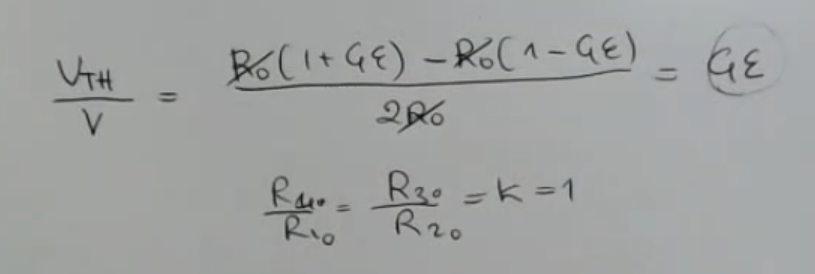 V_TH / V = (R₀(1+Gε) − R₀(1−Gε)) / 2R₀ = Gε
R₄₀ / R₁₀ = R₃₀ / R₂₀ = K = 1